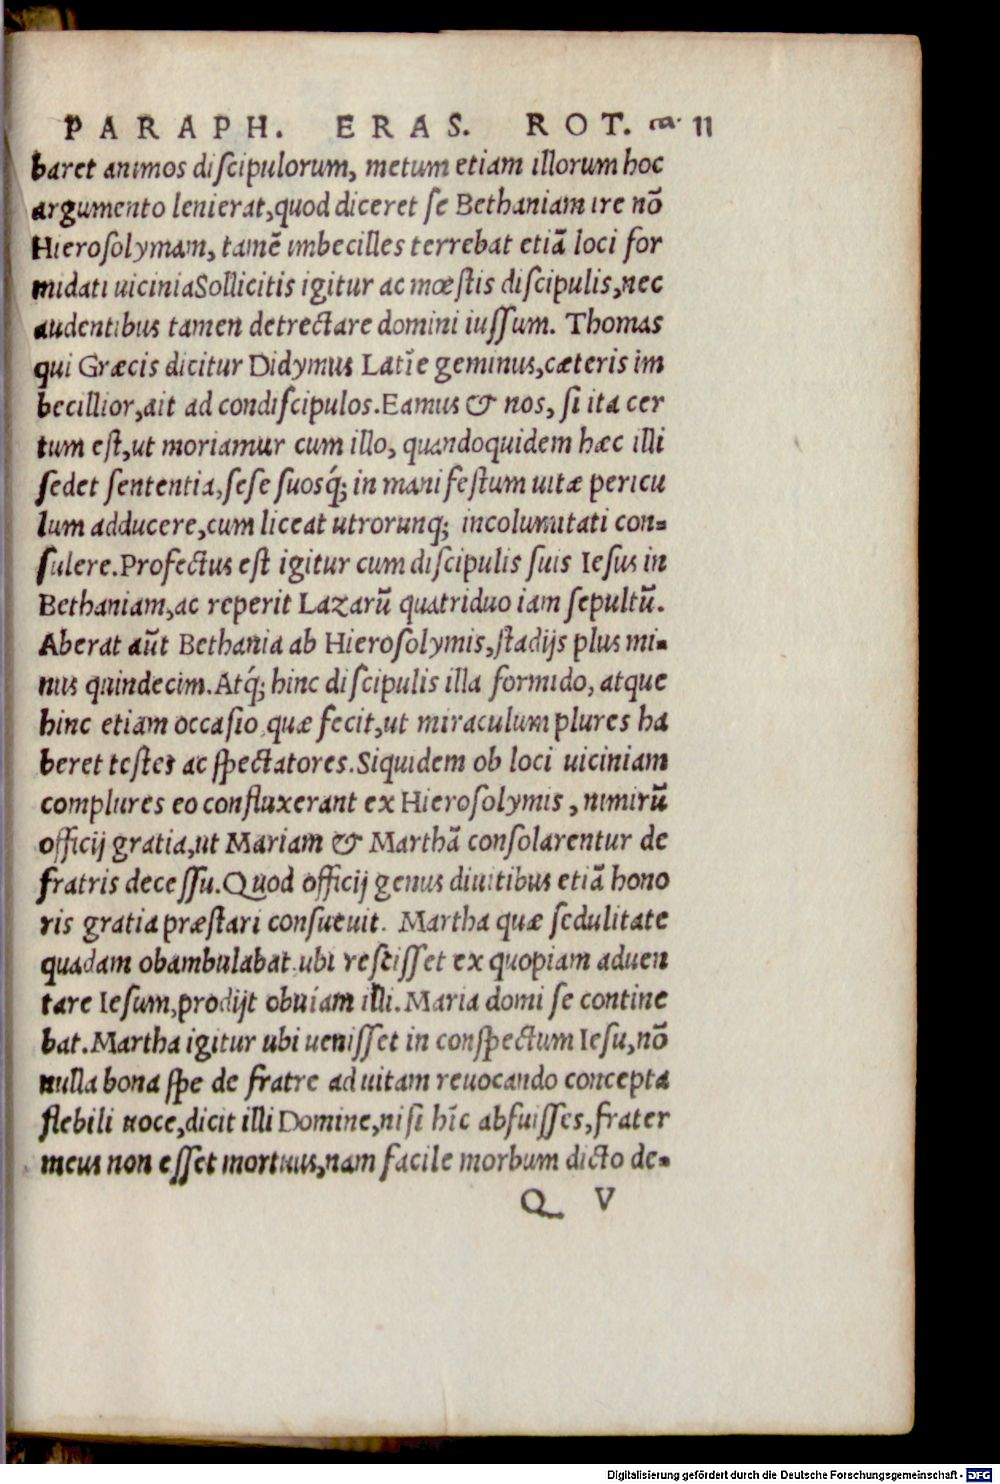 PARAPH. ERAS. ROT. ca. 11
baret animos discipulorum, metum etiam illorum hoc
argumento lenierat,quod diceret se Bethaniam ire nõ
Hierosolymam, tamẽ imbecilles terrebat etiã loci for
midati uiciniaSollicitis igitur ac mœstis discipulis,nec
audentibus tamen detrectare domini iussum. Thomas
qui Græcis dicitur Didymus Latĩe geminus,cæteris im
becillior,ait ad condiscipulos.Eamus & nos, si ita cer
tum est,ut moriamur cum illo, quandoquidem hæc illi
sedet sententia,sese suosq́; in manifestum uitæ pericu
lum adducere,cum liceat utrorunq; incolumitati con-
sulere.Profectus est igitur cum discipulis suis Iesus in
Bethaniam,ac reperit Lazarũ quatriduo iam sepultũ.
Aberat aũt Bethania ab Hierosolymis,stadijs plus mi-
nus quindecim.Atq́; hinc discipulis illa formido, atque
hinc etiam occasio quæ fecit,ut miraculum plures ha
beret testes ac spectatores.Siquidem ob loci uiciniam
complures eo confluxerant ex Hierosolymis, nimirũ
officij gratia,ut Mariam & Marthã consolarentur de
fratris decessu.Quod officij genus diuitibus etiã hono
ris gratia præstari consueuit. Martha quæ sedulitate
quadam obambulabat,ubi rescisset ex quopiam aduen
tare Iesum,prodijt obuiam illi.Maria domi se contine
bat.Martha igitur ubi uenisset in conspectum Iesu,nõ
nulla bona spe de fratre ad uitam reuocando concepta
flebili uoce,dicit illi Domine,nisi hĩc abfuisses,frater
meus non esset mortuus,nam facile morbum dicto de-
Q V
Digitalisierung gefördert durch die Deutsche Forschungsgemeinschaft - DFG